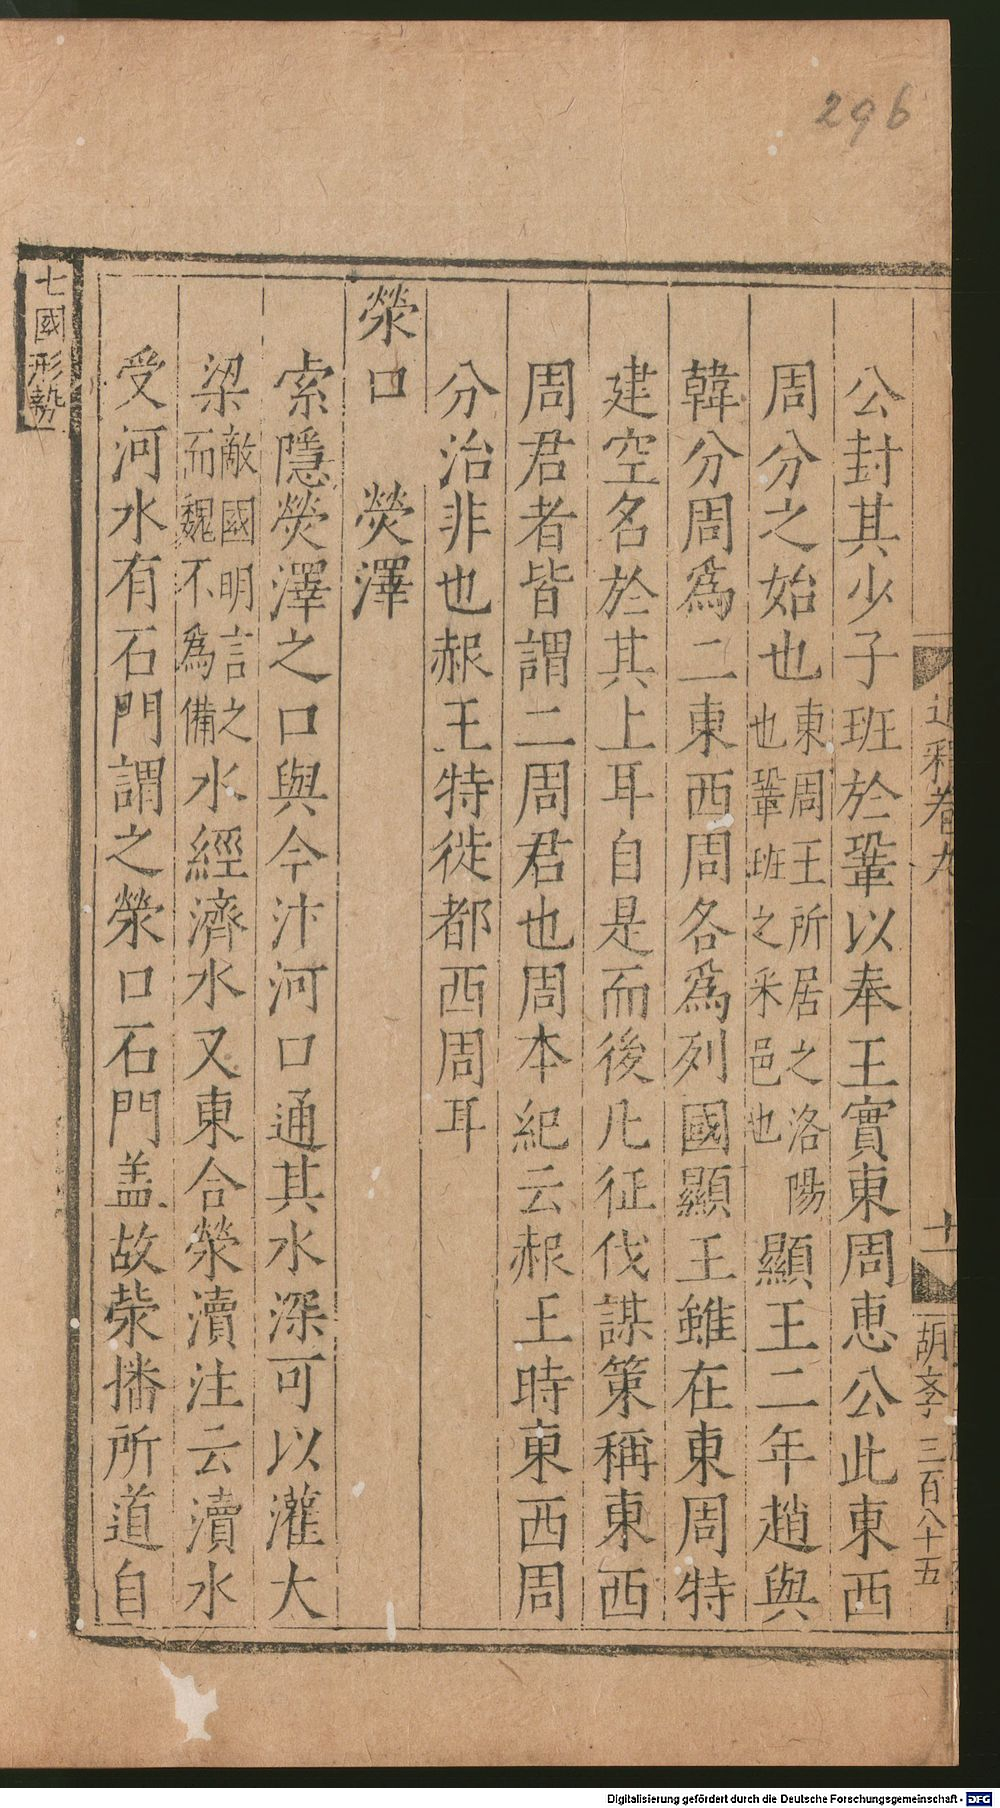 296
公封其少子班於鞏以奉王實東周恵公此東西
周分之始也東周王所居之洛陽也鞏班之采邑也顯王二年趙與
韓分周爲二東西周各爲列國顯王雖在東周特
建空名於其上耳自是而後凡征伐謀策稱東西
周君者皆謂二周君也周本紀云赧王時東西周
分治非也赧王特徙都西周耳
滎口　滎澤
索隱熒澤之口與今汴河口通其水深可以灌大
梁敵國明言之而魏不爲備水經濟水又東合滎瀆注云瀆水
受河水有石門謂之滎口石門盖故滎播所道自
七國形勢
通釋卷九
十一
胡文孛 三百八十五
Digitalisierung gefördert durch die Deutsche Forschungsgemeinschaft - DFG